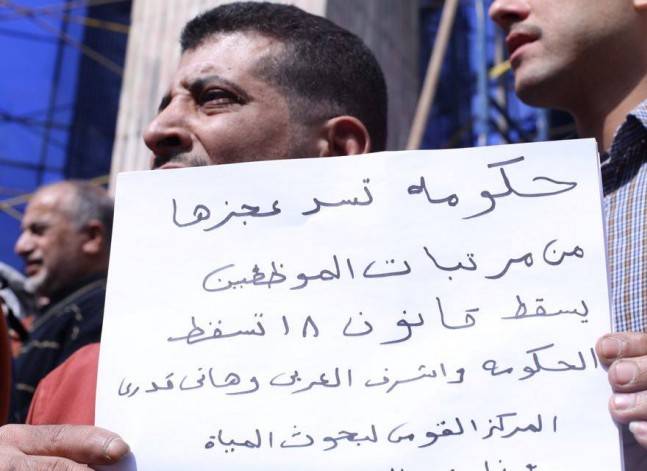 حكومه تسد عجزها
من مرتبات الموظفين
يسقط قانون ١٨ تسقط
الحكومه واشرف العربى وهانى قدرى
المركز القومى لبحوث المياه